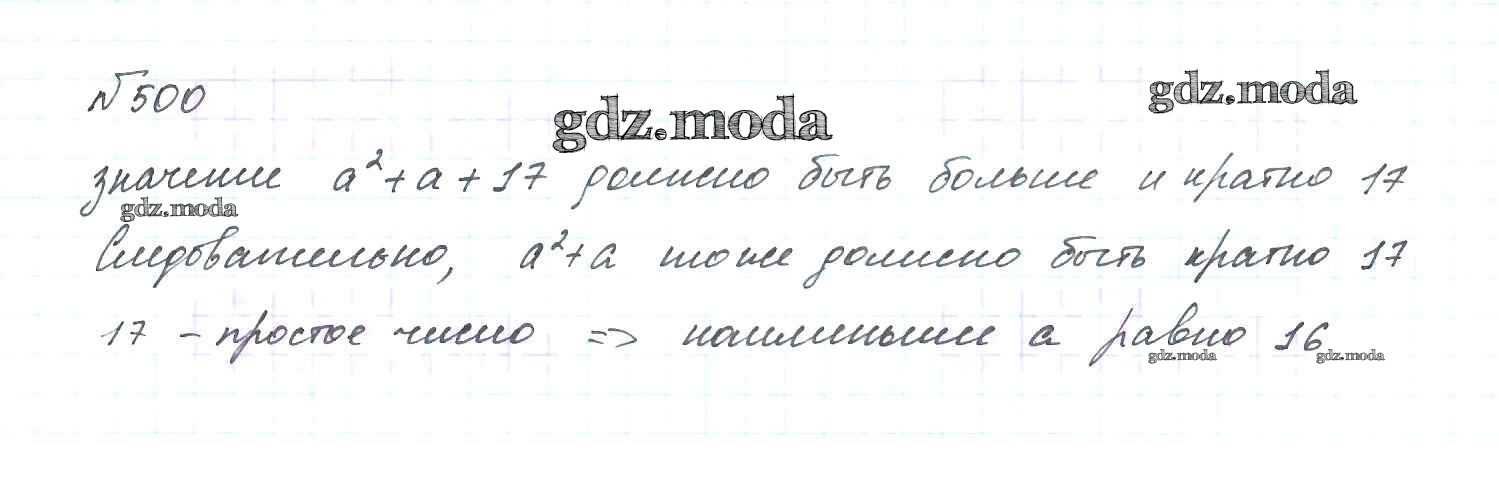 № 500
gdz.moda
gdz.moda
значение a²+a+17 должно быть больше и кратно 17
gdz.moda
Следовательно, a²+a тоже должно быть кратно 17
17 – простое число => наименьшее a равно 16
gdz.moda
gdz.moda